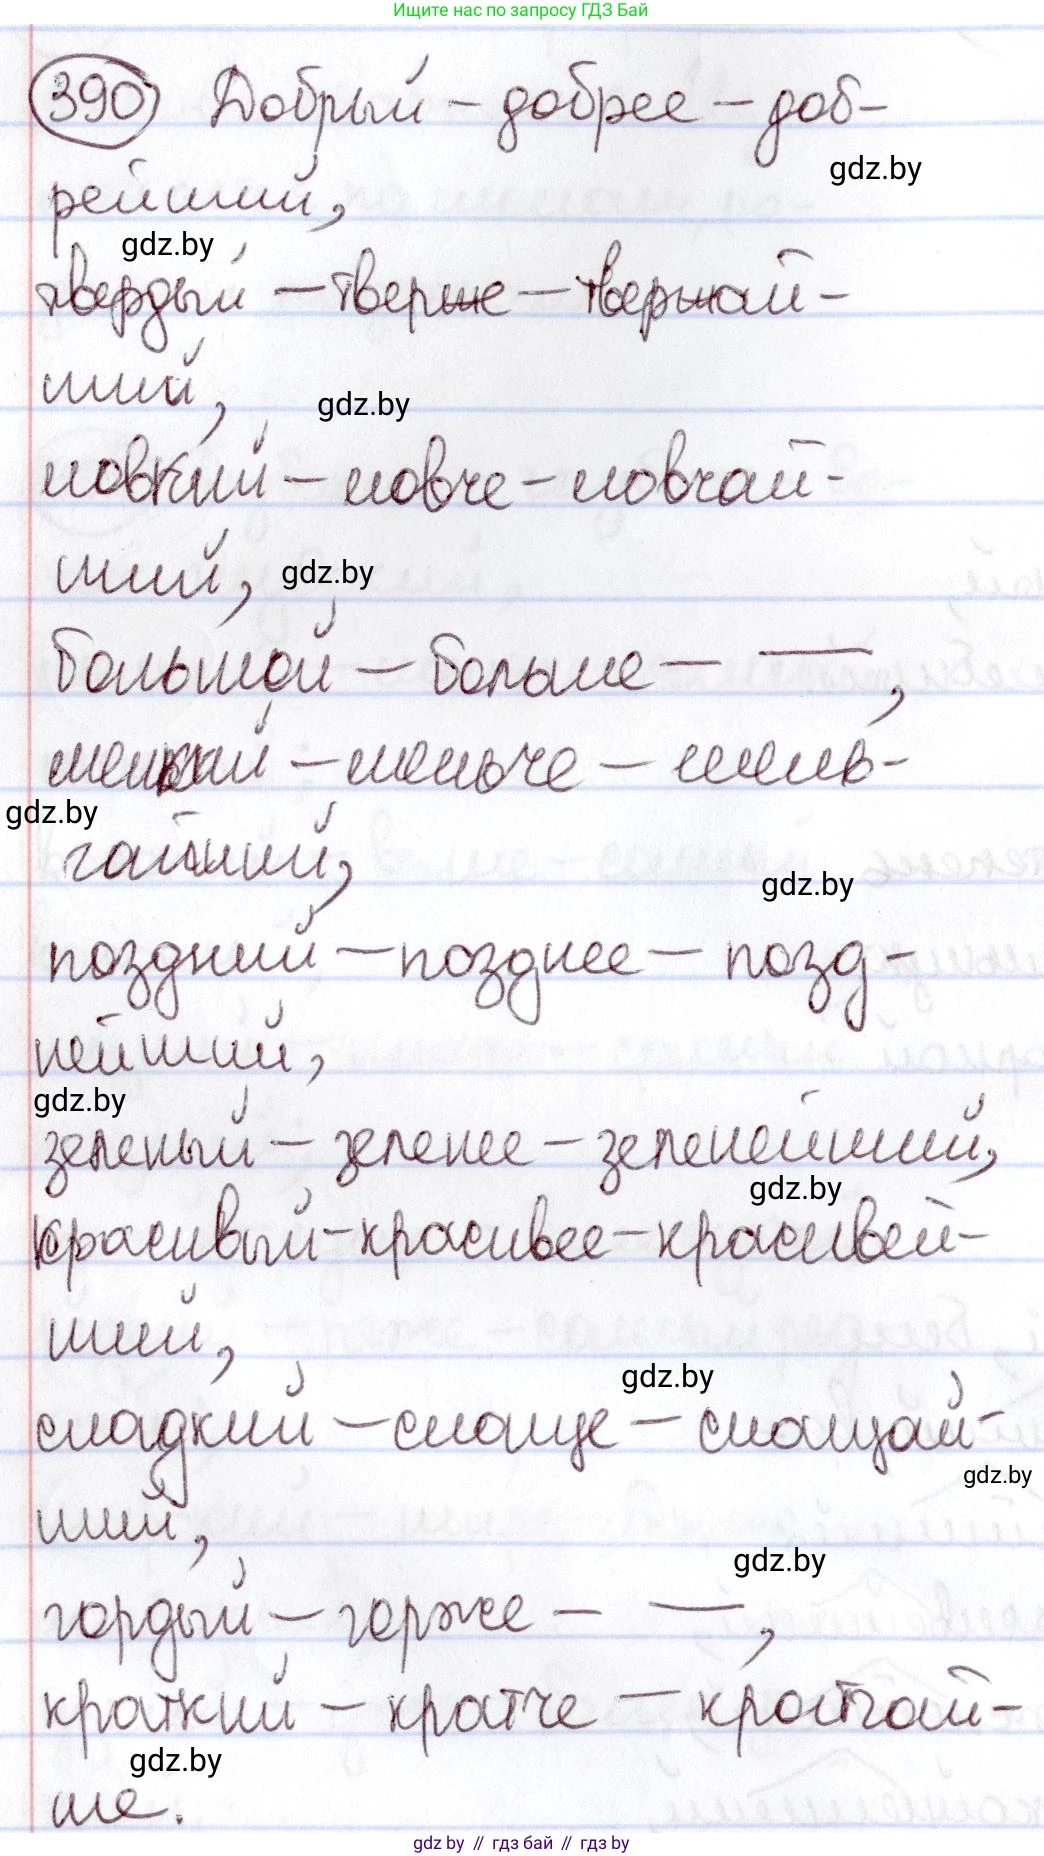 Ищите нас по запросу ГДЗ Бай
390 Добрый – добрее – доб-
gdz.by
рейший,
gdz.by
твердый – тверже – твержай-
ший,
gdz.by
ловкий – ловче – ловчай-
ший,
gdz.by
большой – больше – —,
мелкий – – мель-
gdz.by
чайший,
gdz.by
поздний – позднее – позд-
нейший,
gdz.by
зеленый – зеленее – зеленейший,
gdz.by
красивый – красивее – красивей-
ший,
gdz.by
сладкий – слаще – слащай-
gdz.by
ший,
gdz.by
гордый – горже – —,
краткий – кратче – кратчай-
gdz.by
ше.
gdz.by // гдз бай // gdz.by